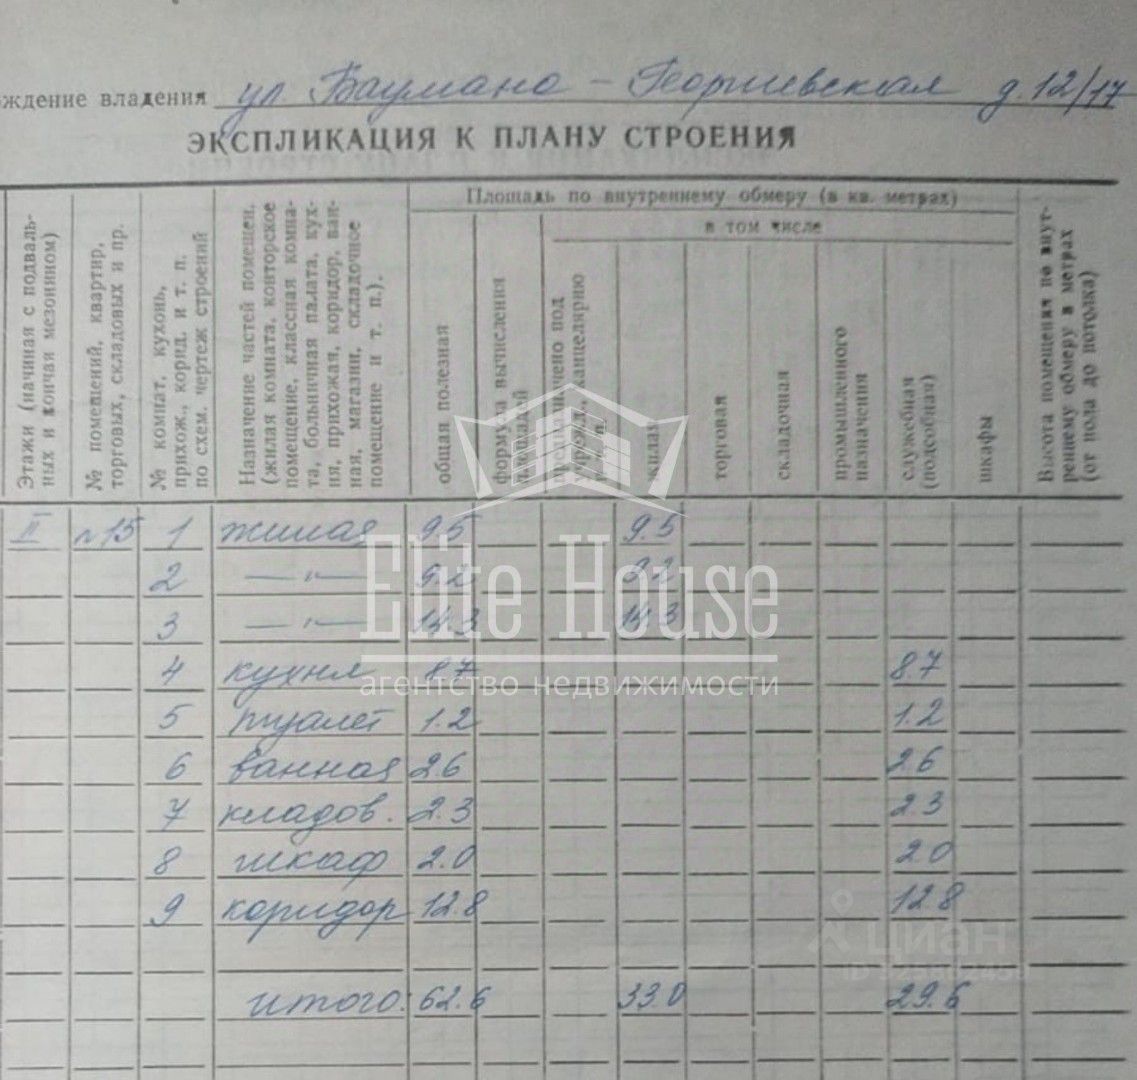 ждение владения ул. Баумана – Георгиевская д.12/17
ЭКСПЛИКАЦИЯ К ПЛАНУ СТРОЕНИЯ
Этажи (начиная с подвальных и кончая мезонином)
№ помещений, квартир, торговых, складовых и пр.
№ комнат, кухонь, прихож., корид. и т. п. по схем. чертеж строений
Назначение частей помещен. (жилая комната, конторское помещение, классная комната, больничная палата, кухня, прихожая, коридор, ванная, магазин, складочное помещение и т. п.).
Площадь по внутреннему обмеру (в кв. метрах)
общая полезная
формула вычисления площадей
в том числе
под канцелярию
жилая
торговая
складочная
промышленного назначения
служебная (подсобная)
шкафы
Высота помещения по внутреннему обмеру в метрах (от пола до потолка)
II №15 1 жилая 9.5 9.5
2 —"— 9.2 9.2
3 —"— 14.3 14.3
4 кухня 8.7 8.7
5 туалет 1.2 1.2
6 ванная 2.6 2.6
7 кладов. 2.3 2.3
8 шкаф 2.0 2.0
9 коридор 12.8 12.8
итого: 62.6 33.0 29.6
Elite House
агентство недвижимости
циан